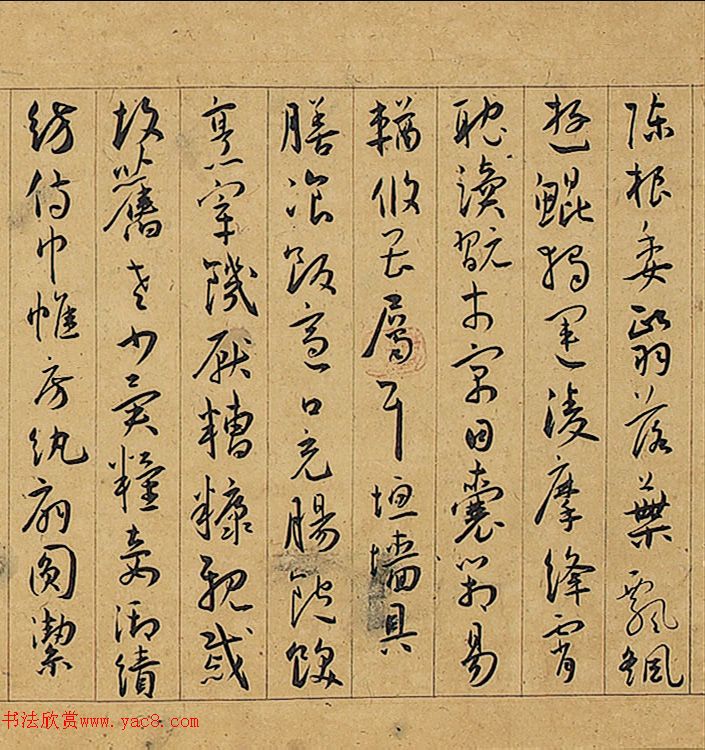 陳根委翳落葉飄飖
遊鯤獨運淩摩絳霄
耽讀翫市寓目囊箱易
輶攸畏屬耳垣墻具
膳飡飯適口充腸飽飫
烹宰饑厭糟糠親戚
故舊老少異糧妾御績
紡侍巾帷房紈扇圓潔
书法欣赏www.yac8.com